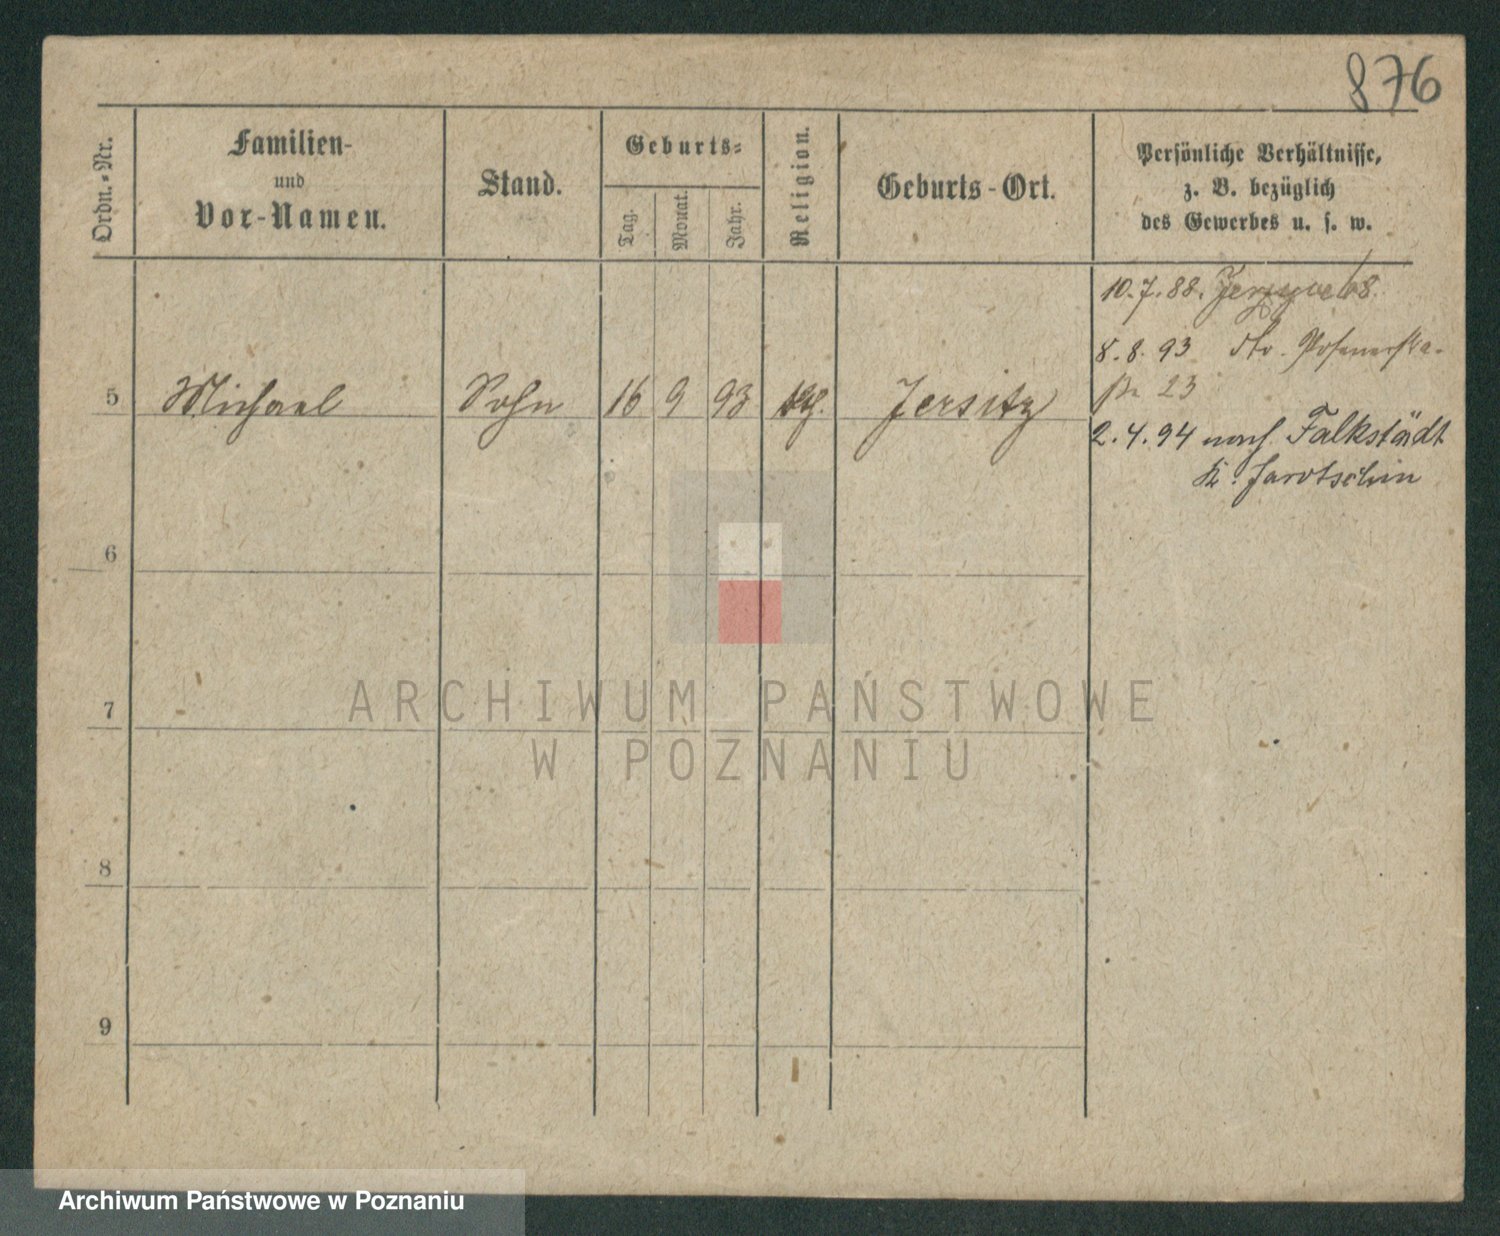 876
Ordn.-Nr.
Familien-
und
Vor-Namen.
Stand.
Geburts-
Tag.
Monat.
Jahr.
Religion.
Geburts-Ort.
Persönliche Verhältnisse,
z. B. bezüglich
des Gewerbes u. s. w.
10.7.88.
8.8.93 Posenerstra-
ße 23
5 Michael Sohn 16 9 93 Jersitz
2.4.94 nach Falkstädt
Jarotschin
6
7
8
9
ARCHIWUM PAŃSTWOWE
W POZNANIU
Archiwum Państwowe w Poznaniu